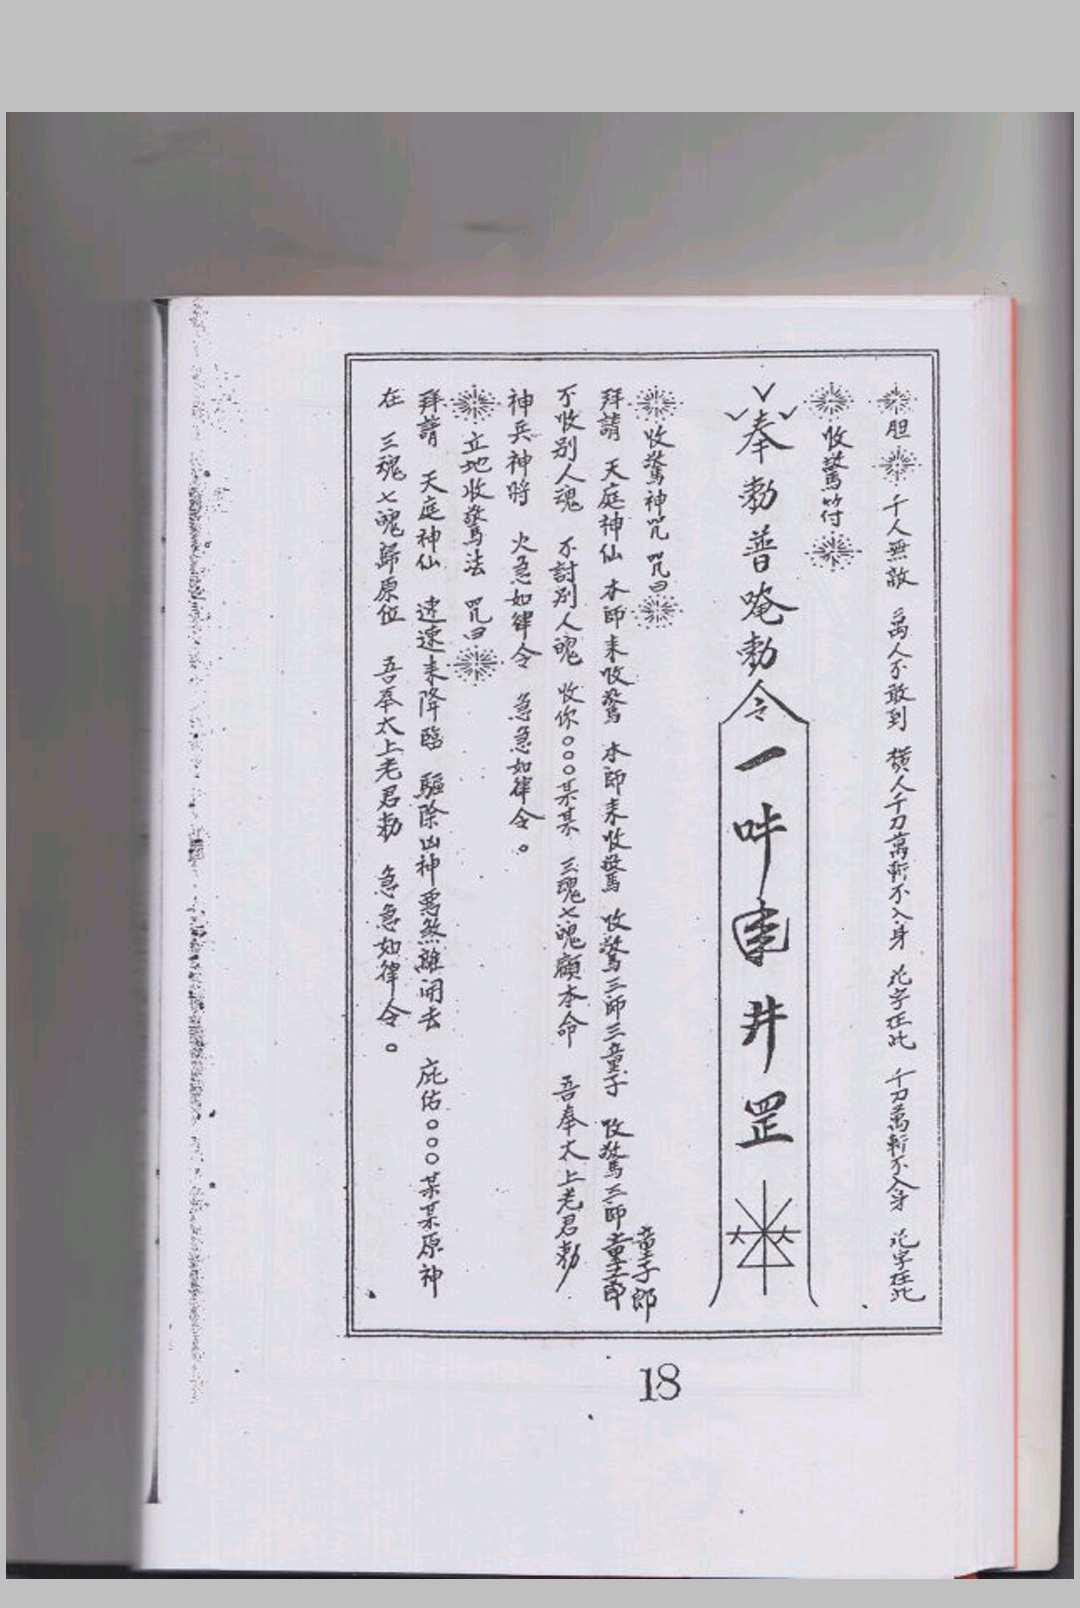 胆 千人無敵 萬人不敢到 橫人千刀萬斬不入身 花字在此 千刀萬斬不入身 花字在此
收驚符
奉勅普唵勅令 一 井 罡
收驚神咒 咒曰
拜請 天庭神仙 本師來收驚 本師來收驚 收驚三師三童子 收驚三師童子郎
童子郎
不收別人魂 不討別人魄 收你○○○某某 三魂七魄顧本命 吾奉太上老君勅
神兵神將 火急如律令 急急如律令。
立地收驚法 咒曰
拜請 天庭神仙 速速來降臨 驅除凶神惡煞離開去 庇佑○○○某某原神
在 三魂七魄歸原位 吾奉太上老君勅 急急如律令。
18